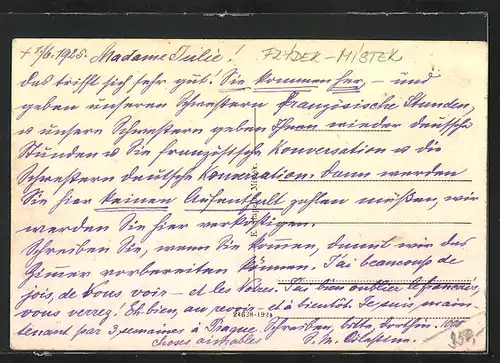 + 5/6. 1925. Madame Julie! FRÝDEK-MÍSTEK
Das trifft sich sehr gut! Sie kommen her, - und
geben unseren Schwestern Französische Stunden,
u unsere Schwestern geben Ihnen wieder deutsche
Stunden u Sie französische Konversation u die
Schwestern deutsche Konversation. Dann werden
Sie hier keinen Aufenthalt zahlen müßen, wir
werden Sie hier verköstigen.
Schreiben Sie, wann Sie kommen, damit wir das
Zimmer vorbereiten können. J'ai beaucoup de
joie, de Vous voir - et les votres. J'ai bien oublier le français,
vous verrez! Eh bien, au revoir - et à bientôt. Je suis main-
24638-1924
tenant par 3 semaines à Prague. Schreiben, bitte dorthin.
choses aimables S. M.